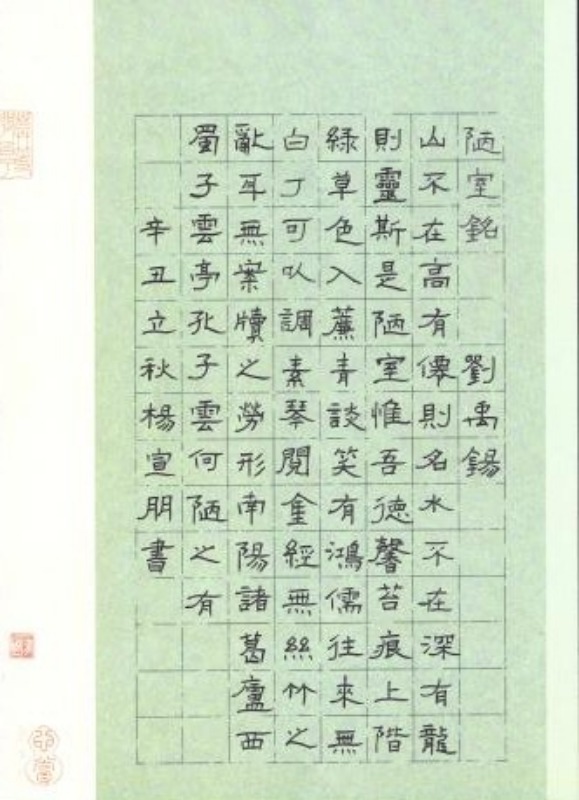 陋室銘 劉禹錫
山不在高有僊則名水不在深有龍
則靈斯是陋室惟吾德馨苔痕上階
綠草色入薦青談笑有鴻儒往來無
白丁可㕥調素琴閱金經無絲竹之
亂耳無案牘之勞形南陽諸葛廬西
蜀子雲亭孔子雲何陋之有
辛丑立秋楊宣朋書